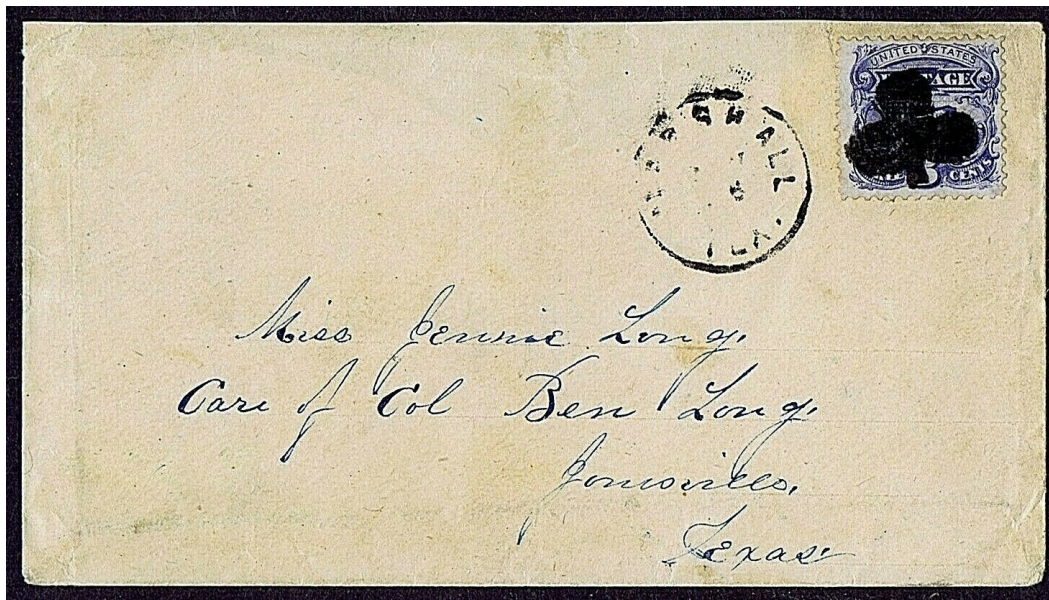 UNITED STATES
POSTAGE
3 CENTS
MARSHALL
6
TEX.
Miss Jennie Long.
Care of Col Ben Long.
Jonesville,
Texas.